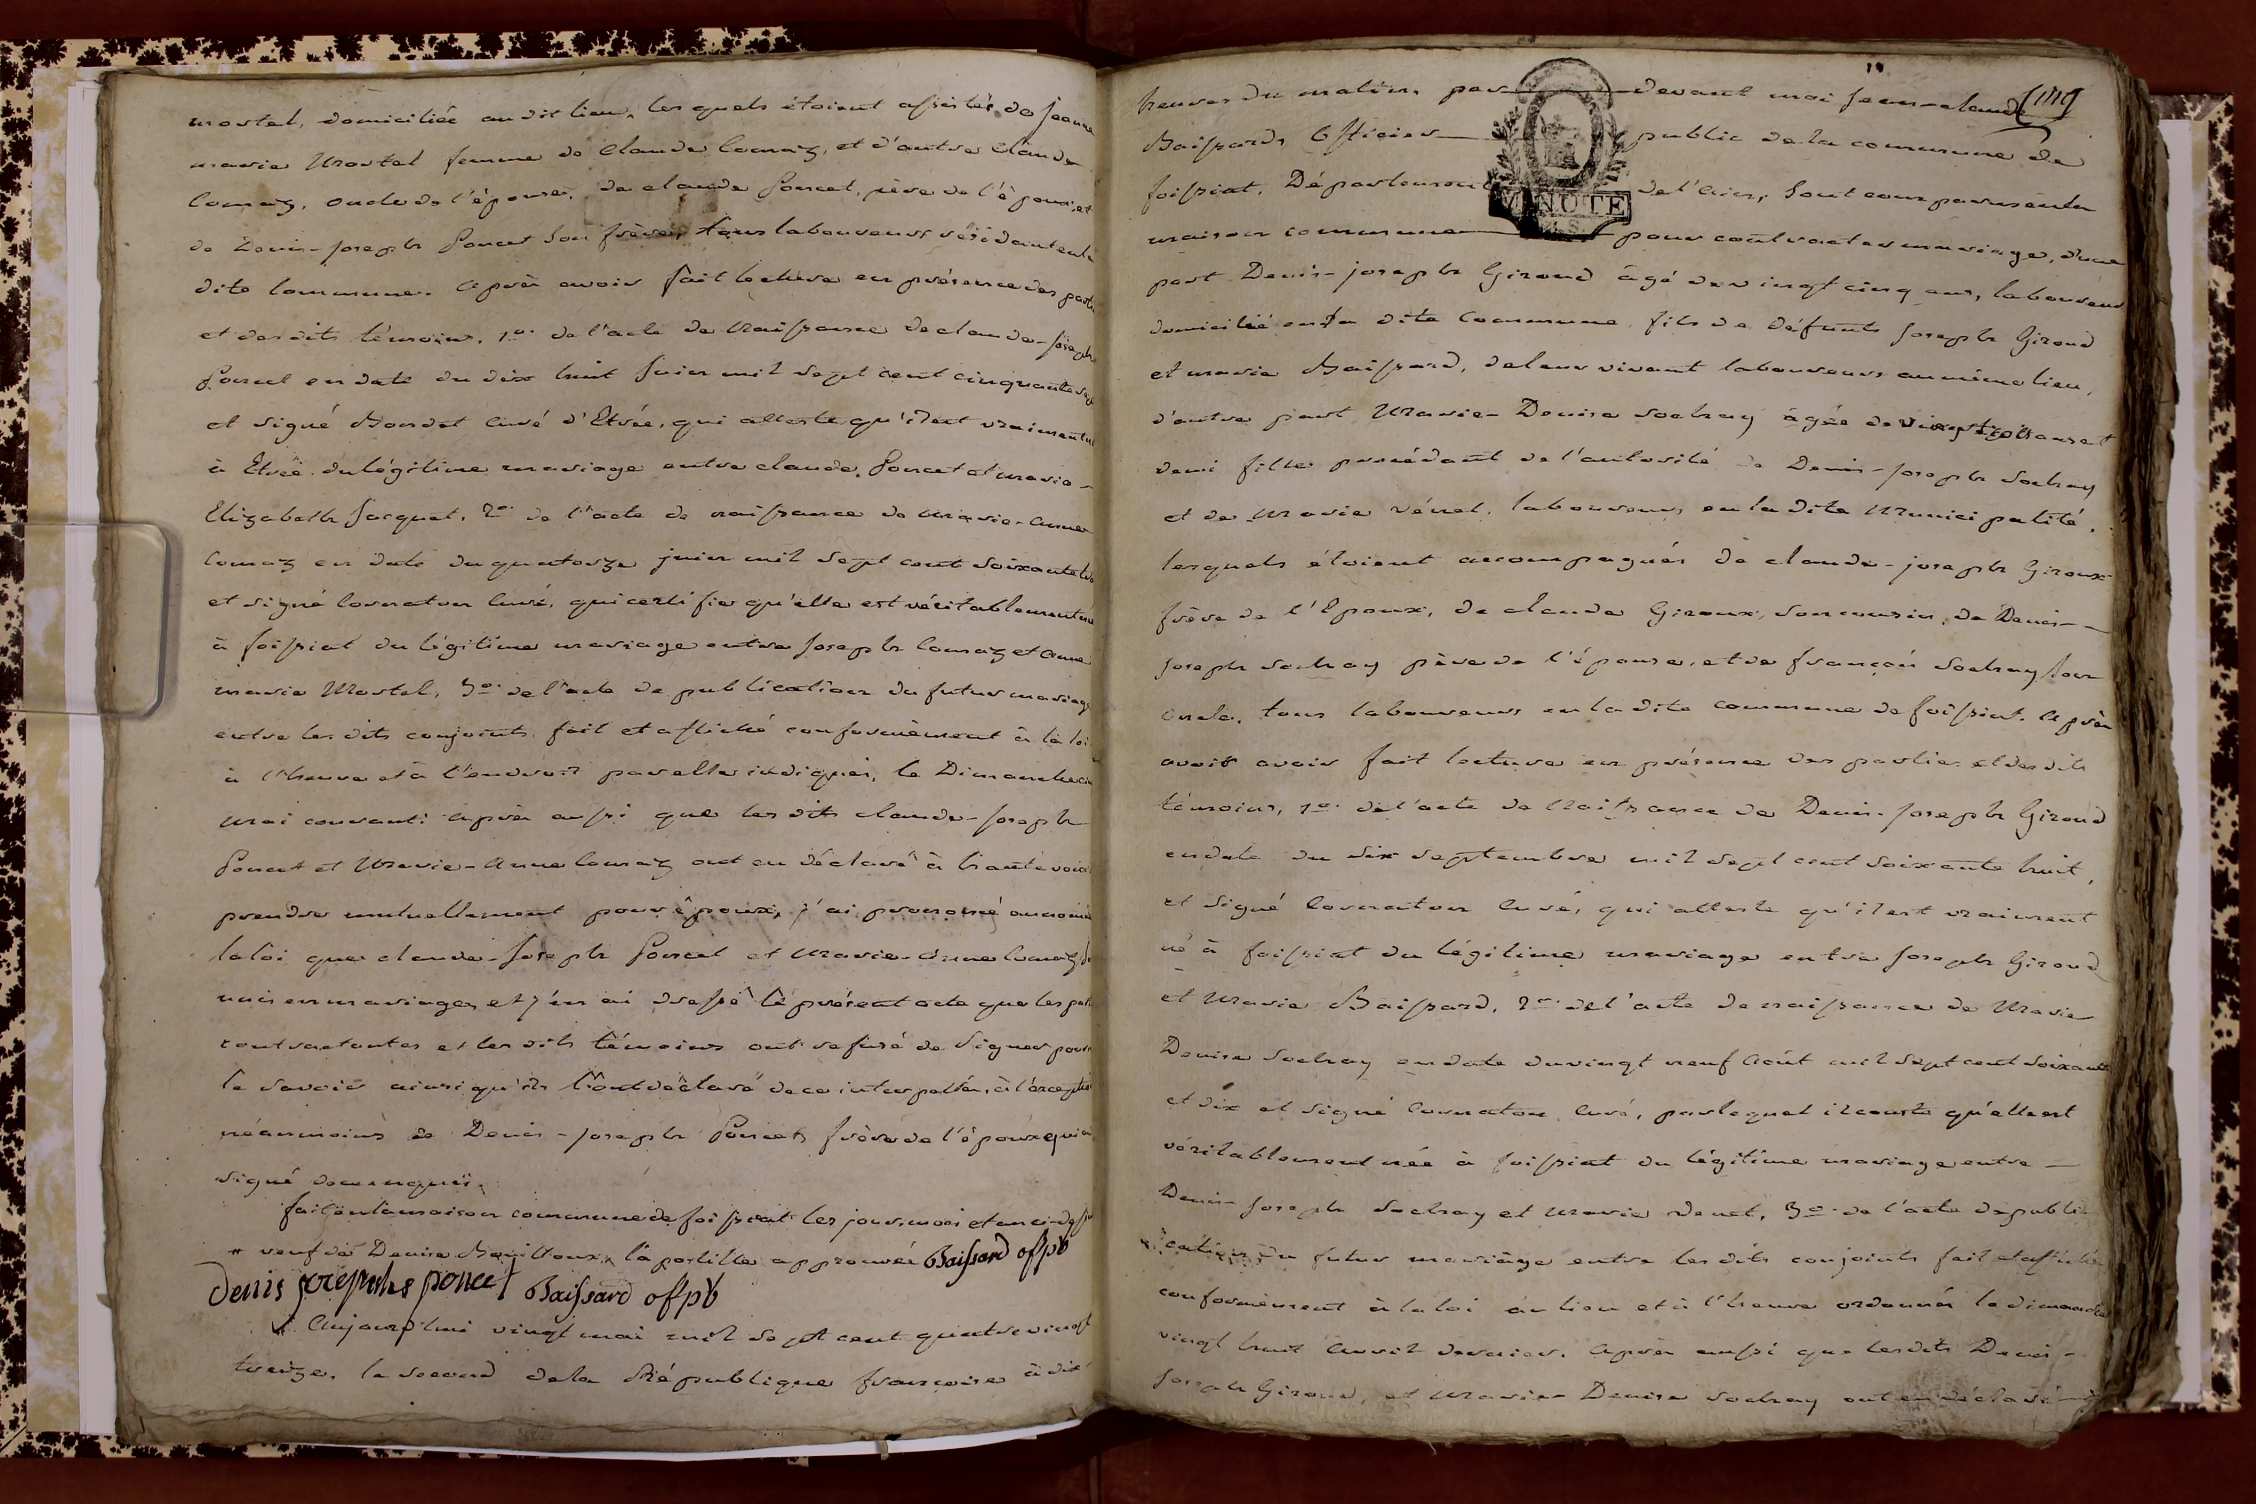 mortel, domiciliée audit lieu, les quels étoient assistés de jeanne
marie Mortel femme de Claude Comaz, et d'autre Claude
Comaz, oncle de l'épouse, de claude Poncet, père de l'époux, et
de Denis-joseph Poncet son frère, tous laboureurs résidants en la
dite Commune. Après avoir fait lecture en présence des parties
et des dits témoins, 1o. de l'acte de Naissance de claude-joseph
Poncet en date du dix huit juin mil sept cent cinquante sept
et signé Bordat Curé d'Etrée, qui atteste qu'il est vraiment né
à Etrée du légitime mariage entre claude Poncet et marie-
Elizabeth Jacquet, 2o. de l'acte de naissance de Marie-Anne
Comaz en date du quatorze juin mil sept cent soixante
et signé Cornaton Curé, qui certifie qu'elle est véritablement née
à foissiat du légitime mariage entre Joseph Comaz et Anne
marie Mortel, 3o. de l'acte de publication du futur mariage
entre les dits conjoints fait et affiché conformément à la loi
à l'heure et à l'endroit par elle indiqués, le Dimanche
Mai courant. Après aussi que les dits claude-joseph
Poncet et Marie-Anne Comaz ont eu déclaré à haute voix
prendre mutuellement pour époux, j'ai prononcé au nom de
la loi que claude-Joseph Poncet et Marie-Anne Comaz
unis en mariage, et j'en ai dressé le présent acte que les parties
contractantes et les dits témoins ont refusé de signer pour
le savoir ainsi qu'ils l'ont déclaré de ce interpellés, à l'exception
néanmoins de Denis-joseph Poncet, frère de l'époux qui a
signé
fait en la maison commune de foissiat les jour, mois et an ci-dessus
* veuf de Denise la postille approuvée Baissard of pb
Denis josephs poncet Baissard of pb
Aujourd'hui vingt mai mil sept cent quatre vingt
treize, le second de la République françoise à dix
heures du matin, par devant moi jean-claude
Baissard, Officier public de la commune de
foissiat, Département de l'Ain, sont comparus en la
MINUTE
maison commune pour contracter mariage, d'une
part Denis-joseph Giroud âgé de vingt cinq ans, laboureur
domicilié en la dite Commune, fils de défunts Joseph Giroud
et marie Baissard, de leur vivant laboureurs au même lieu,
d'autre part Marie-Denise Sochay âgée de vingt trois ans et
demi fille procédant de l'autorité de Denis-joseph Sochay
et de Marie Venet, laboureurs en la dite Municipalité,
lesquels étoient accompagnés de claude-joseph Giroux
frère de l'Epoux, de claude Giroux, son cousin, de Denis-
Joseph Sochay père de l'épouse, et de françois Sochay son
oncle, tous laboureurs en la dite commune de foissiat. Après
avoir avoir fait lecture en présence des parties et des dits
témoins, 1o. de l'acte de Naissance de Denis-Joseph Giroud
en date du six septembre mil sept cent soixante huit,
et signé Cornaton Curé, qui atteste qu'il est vraiment
né à foissiat du légitime mariage entre Joseph Giroud
et Marie Baissard, 2o. de l'acte de naissance de Marie
Denise Sochay en date du vingt neuf Août mil sept cent soixante
et dix et signé Cornaton Curé, par lequel il conste qu'elle est
véritablement née à foissiat du légitime mariage entre
Denis-Joseph Sochay et Marie Venet, 3o. de l'acte de publi
cation du futur mariage entre les dits conjoints fait et affiché
conformément à la loi au lieu et à l'heure ordonnés le dimanche
vingt huit Avril dernier. Après aussi que les dits Denis-
Joseph Giroud, et Marie-Denise Sochay ont eu déclaré